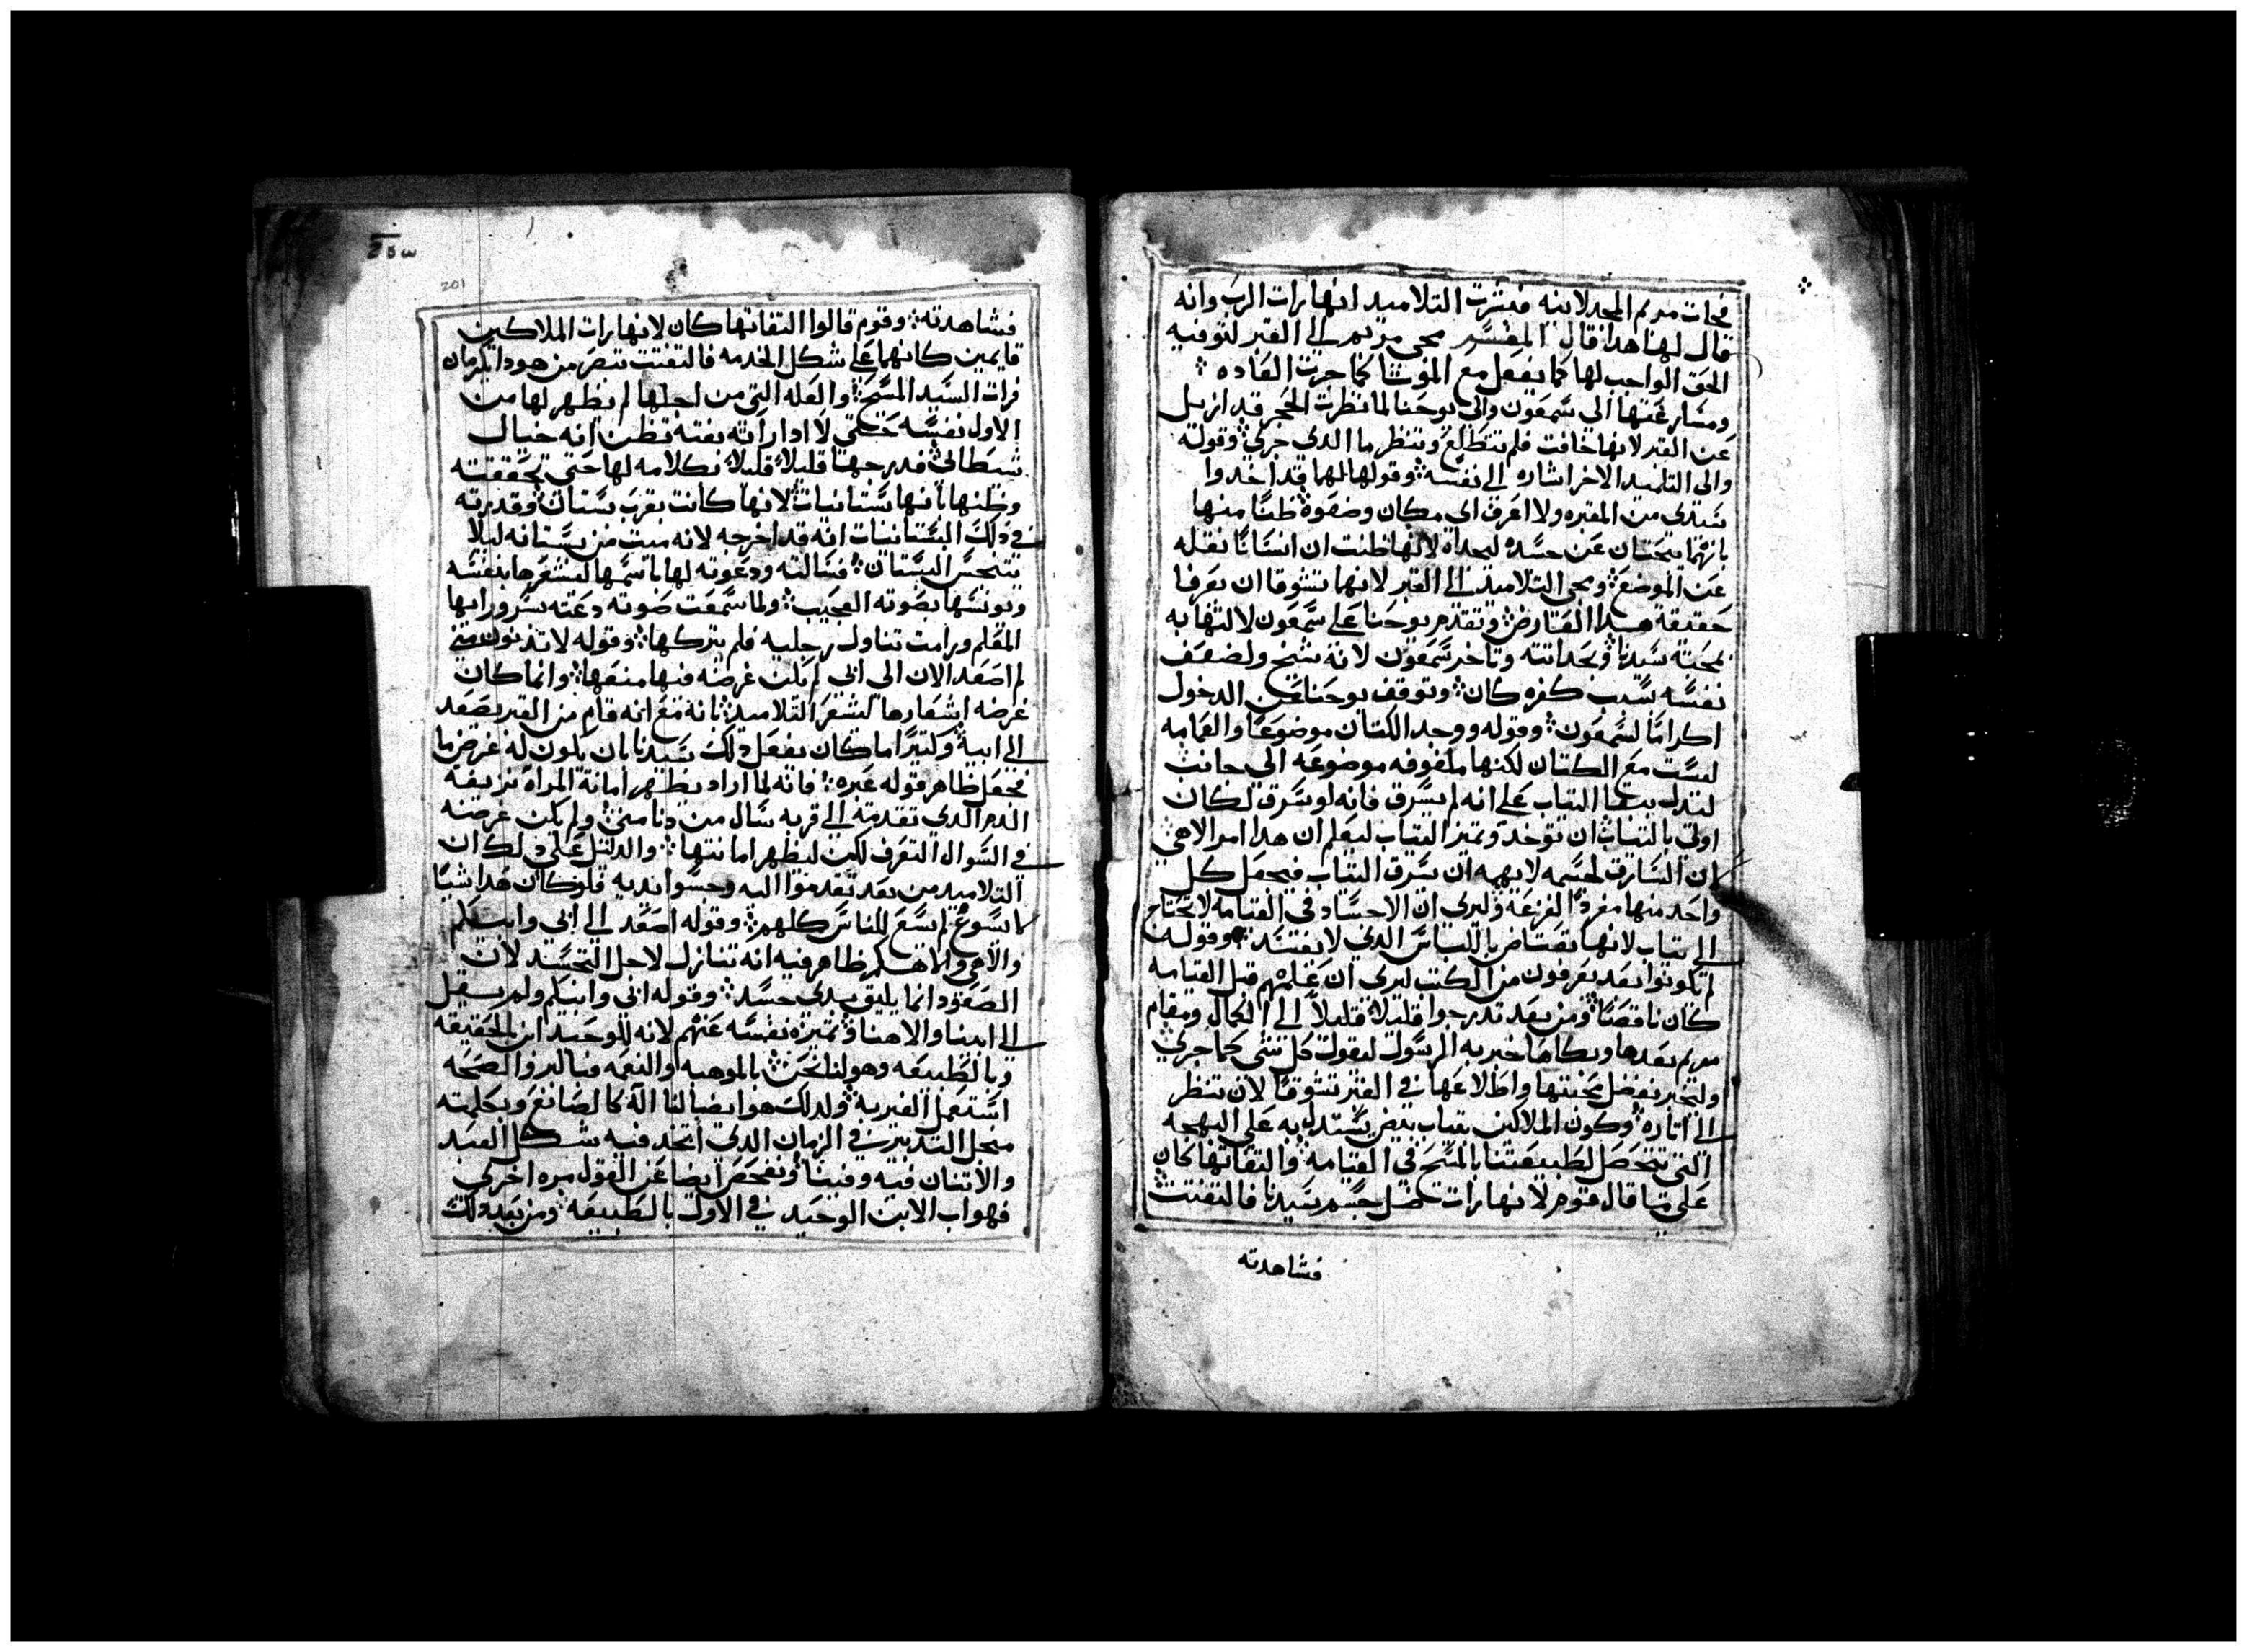 فجات مريم المجدلانيه فبشرت التلاميد انها رات الرب وانه
قال لها هدا قال المفسر مجى مريم الى القبر لتوفيه
الحق الواجب لها كما يفعل مع الموتا كما جرت العاده
ومسارعتها الى سمعون والى يوحنا لما نظرت الحجر قد ازيل
عن القبر لانها خافت فلم تتطلع وتنظر ما الدي جرى وقوله
والى التلميد الاخر اشاره الى نفسه وقولها لهما قد اخدوا
سيدى من المقبره ولا اعرف اى مكان وضعوه ظنا منها
بانهما يبحتان عن جسده ليجداه لانها ظنت ان انسانا نقله
عن الموضع ومجى التلاميد الى القبر لانهما تشوقا ان يعرفا
حقيقة هدا العارض وتقدم يوحنا على سمعون لالتهابه
بمحبة سيدنا وبحداتته وتاخر سمعون لانه شيخ ولضعف
نفسه بسبب كفره كان وتوقف يوحنا عن الدخول
اكراما لسمعون وقوله ووجد الكتان موضوعا والعمامه
ليست مع الكتان لكنها ملفوفه موضوعه الى جانب
لتدل بهدا التياب على انه لم يسرق فانه لو سرق لكان
اولى بالتياب ان توخد وتميز التياب ليعلم ان هدا امر الاهى
لان السارق لجسمه لا يهمه ان سرق التياب فيجعل كل
واحد منها مفردا لفزعه وليرى ان الاجساد فى القيامه لا تحتاج
الى تياب لانها تعتاض باللباس الدي لا يفسد وقوله
لم يكونوا بعد يعرفون من الكتب ليرى ان علمهم قبل القيامه
كان ناقصا ومن بعد تدرجوا قليلا قليلا الى الكمال ومقام
مريم بعدها وبكاها خبر به الرسول ليقول كل شى كما جرى
وليخبر بفضل محبتها واطلاعها فى القبر تشوقا لان تنظر
الى اتاره وكون الملاكين بتياب بيض يستدل به على البهجه
التى تحصل لطبيعتنا بالمسيح فى القيامه والتفاتها كان
على ما قال قوم لانها رات ضل جسم سيدنا فالتفتت
فشاهدته
فشاهدته وقوم قالوا التفاتها كان لانها رات الملاكين
قايمين كانهما على شكل الخدمه فالتفتت تبصر من هودا يكرمان
فرات السيد المسيح والعله التى من اجلها لم يظهر لها من
الاول نفسه حتى لا ادا راته بغته تظن انه خيال
شيطانى فدرجها قليلا قليلا بكلامه لها حتى تحققته
وظنها بانها بستانيات لانها كانت بقرب بستان وقدرته
فى دلك البستانيات انه قد اخرجه لانه ميت من بستانه ليلا
يتنجس البستان فسالته ودعوته لها باسمها ليشعرها بنفسه
ويونسها بصوته العجيب ولما سمعت صوته دعته بسرور ايها
المعلم ورامت تناول رجليه فلم يتركها وقوله لا تدنون منى
لم اصعد الان الى ابى لم يكن غرضه فيها منعها وانما كان
غرضه اشعارها لتشعر التلاميد بانه مع انه قام من القبر يصعد
الى ابيه وكتيرا ما كان يفعل دلك سيدنا بان يكون له غرض ما
فيجعل ظاهر قوله غيره فانه لما اراد يظهر امانة المراه نزيفة
الدم الدي تقدمت الى قربه سال من دنا منى ولم يكن غرضه
فى السوال التعرف لكن ليظهر امانتها والدليل على دلك ان
التلاميد من بعد تقدموا اليه وجسوا يديه فلو كان هدا شيا
لا يسوغ لم يسغ للناس كلهم وقوله اصعد الى ابى وابيكم
والاهى والاهكم ظاهر فيه انه تنازل لاجل التجسد لان
الصعود انما يليق بدى جسد وقوله ابى وابيكم ولم يقل
الى ابينا والاهنا وتميزه نفسه عنهم لانه للوحيد ابن بالحقيقه
وبالطبيعه وهو لنا نحن بالموهبه والنعمه فبالبروا لصحه
استعمل الغيريه ولدلك هو ايضا لنا الاه كالصانع وبكلمته
منحل التدبير فى الزمان الدي اتخد فيه شكل العبد
والاتنان فيه وفينا ونفحص ايضا عن القول مره اخرى
فهو اب الابن الوحيد فى الاول بالطبيعه ومن بعد دلك
201